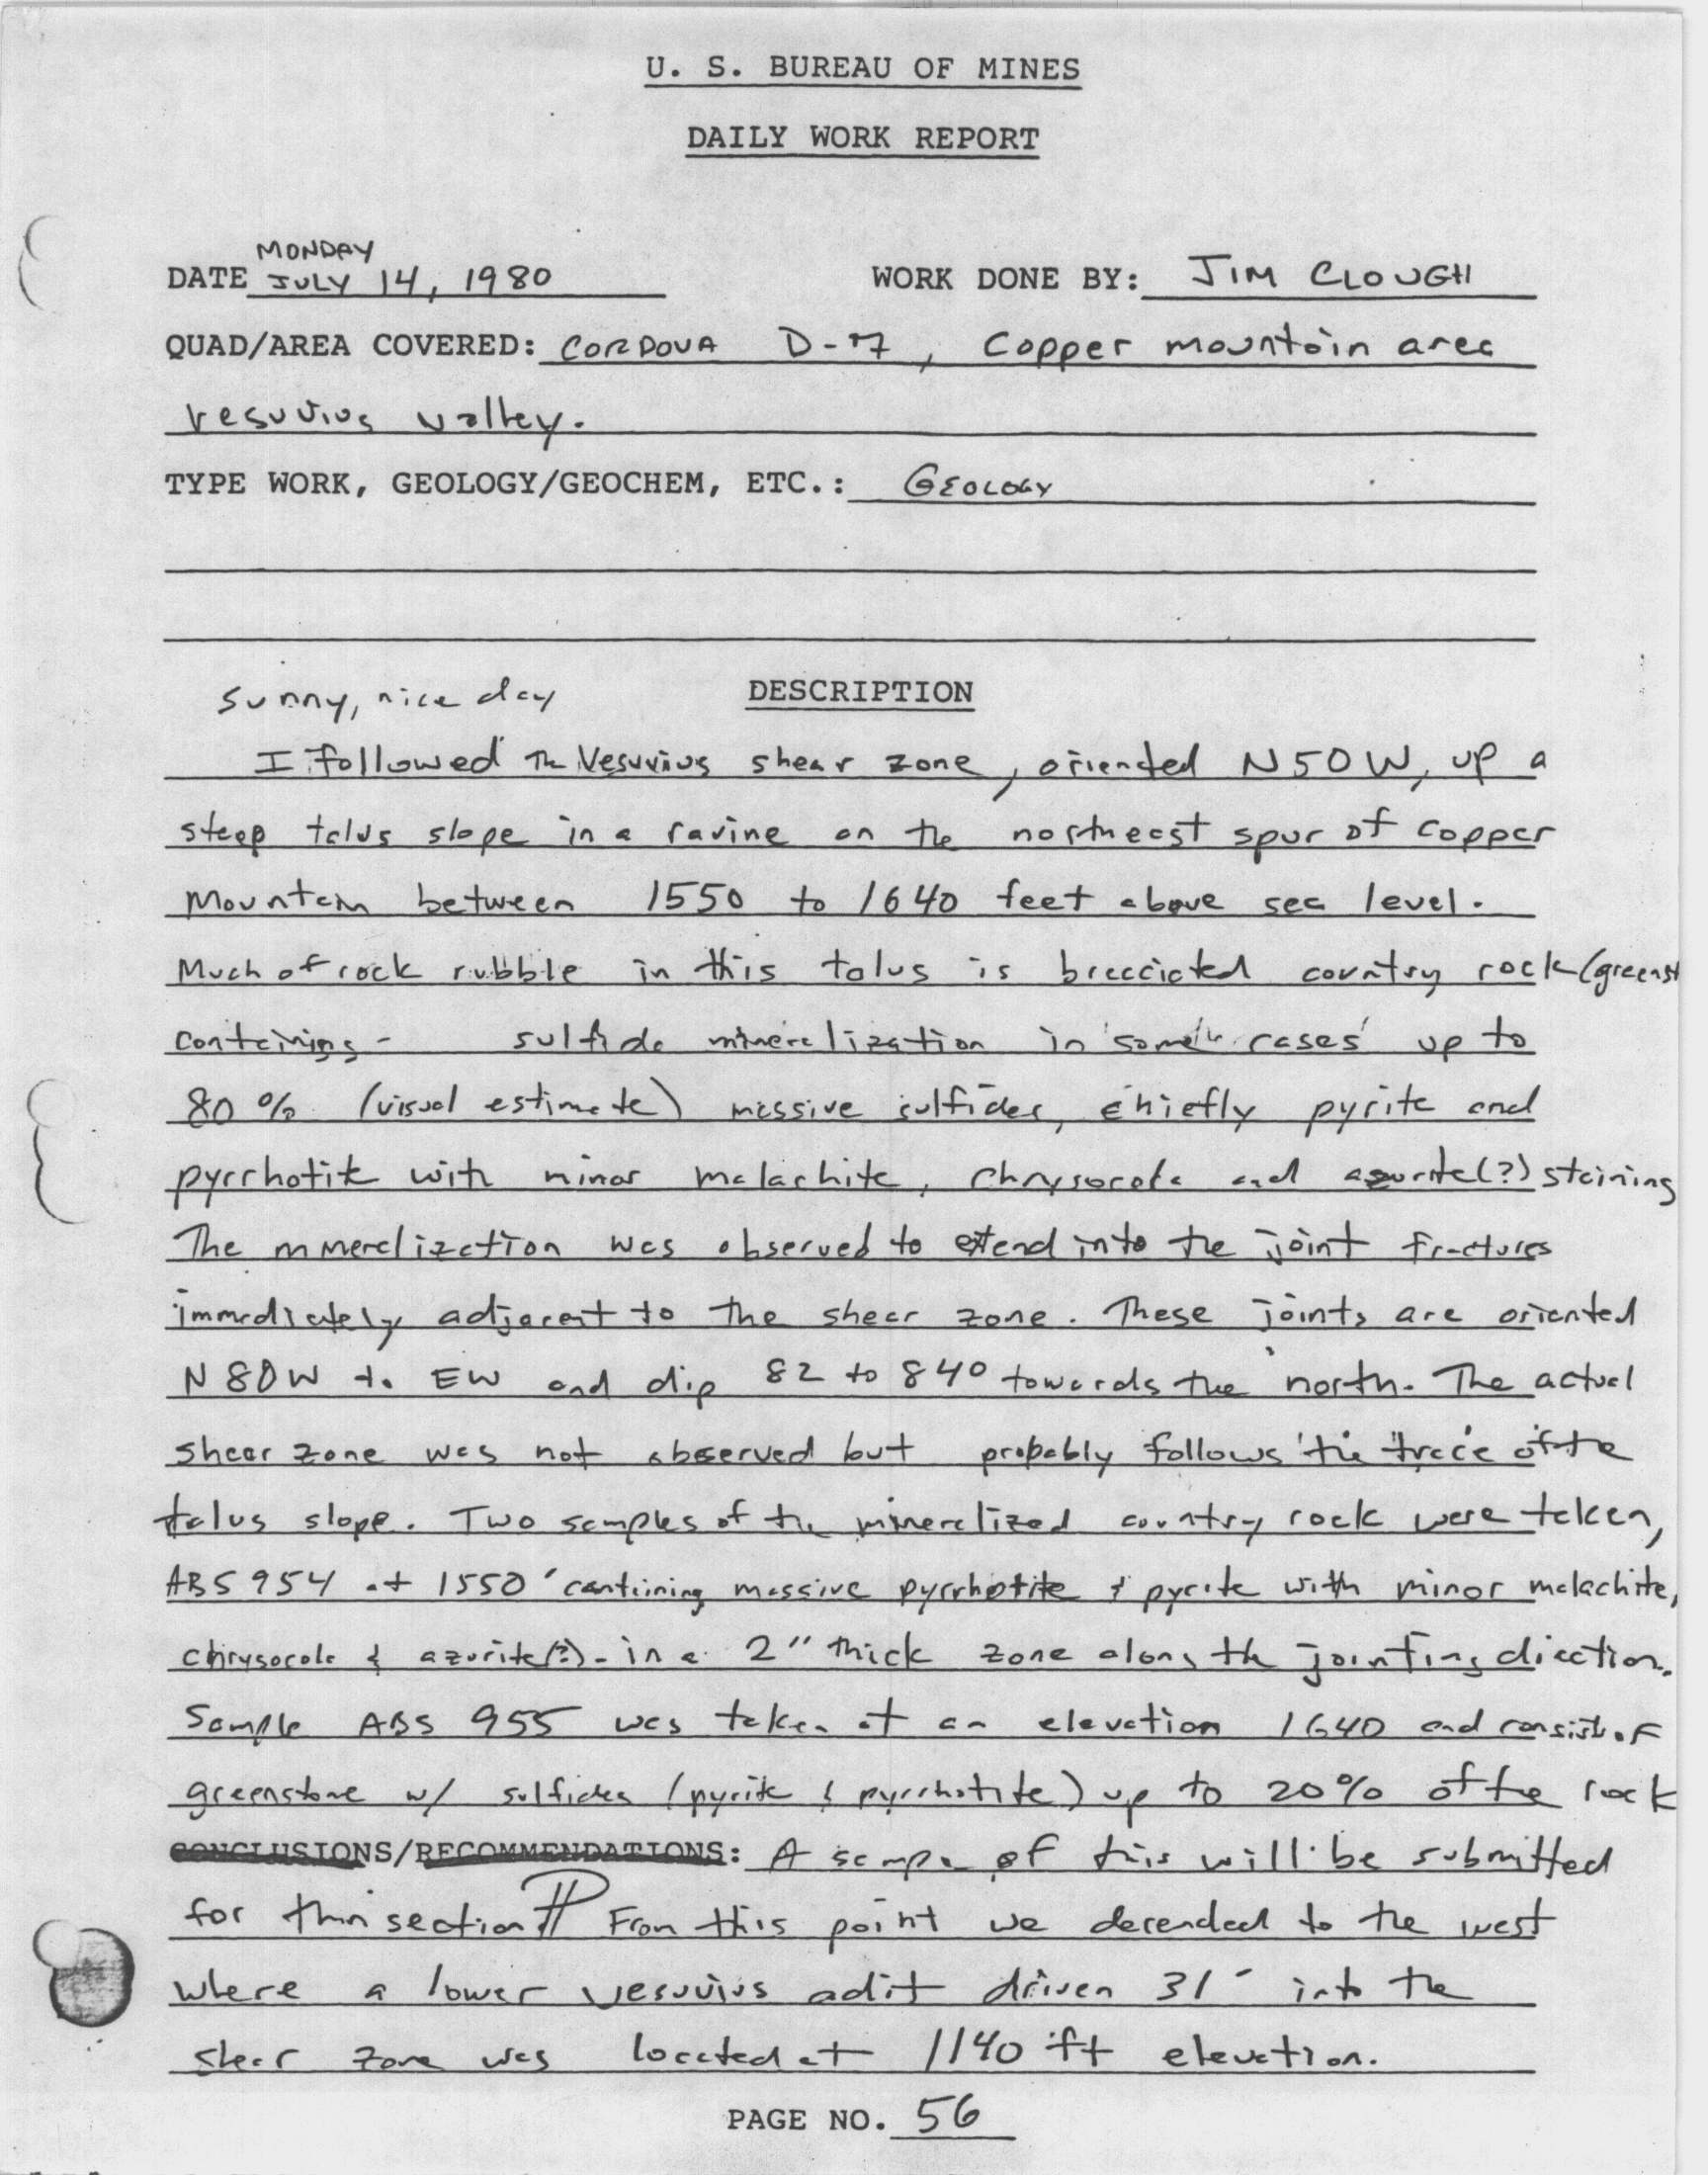 U. S. BUREAU OF MINES
DAILY WORK REPORT
MONDAY
DATE JULY 14, 1980 WORK DONE BY: JIM CLOUGH
QUAD/AREA COVERED: CORDOVA D-7, Copper mountain area
Vesuvius valley.
TYPE WORK, GEOLOGY/GEOCHEM, ETC.: GEOLOGY
sunny, nice day DESCRIPTION
I followed The Vesuvius shear zone, oriented N50W, up a
steep talus slope in a ravine on the northeast spur of Copper
Mountain between 1550 to 1640 feet above sea level.
Much of rock rubble in this talus is brecciated country rock (greenst
containing - sulfide mineralization in some cases up to
80% (visual estimate) massive sulfides, chiefly pyrite and
pyrrhotite with minor malachite, chrysocola and azurite(?) staining
The mineralization was observed to extend into the joint fractures
immediately adjacent to the shear zone. These joints are oriented
N80W to EW and dip 82 to 84° towards the north. The actual
shear zone was not observed but probably follows the trace of the
talus slope. Two samples of the mineralized country rock were taken,
ABS 954 at 1550' containing massive pyrrhotite & pyrite with minor malachite,
chrysocola & azurite(?) - in a 2" thick zone along the jointing direction.
Sample ABS 955 was taken at an elevation 1640 and consists of
greenstone w/ sulfides (pyrite & pyrrhotite) up to 20% of the rock
CONCLUSIONS/RECOMMENDATIONS: A sample of this will be submitted
for thin section ¶ From this point we decended to the west
where a lower Vesuvius adit driven 31' into the
shear zone was located at 1140 ft elevation.
PAGE NO. 56